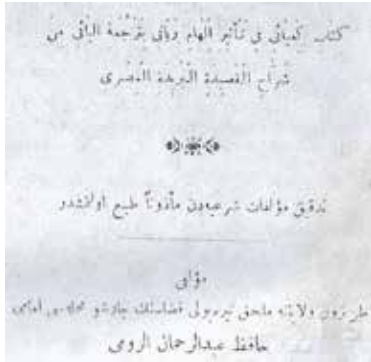 كتاب كميائى فى تأثير الهام ربانى بترجمة البائى من
شراح القصيدة البردة المضرى
تدقيق مؤلفات شرعيه‌دن مأذوناً طبع اولنمشدر
مؤلفى
طربزون ولايتنه ملحق تيره‌بولى قضاسنك امامى
حافظ عبدالرحمان الرومى